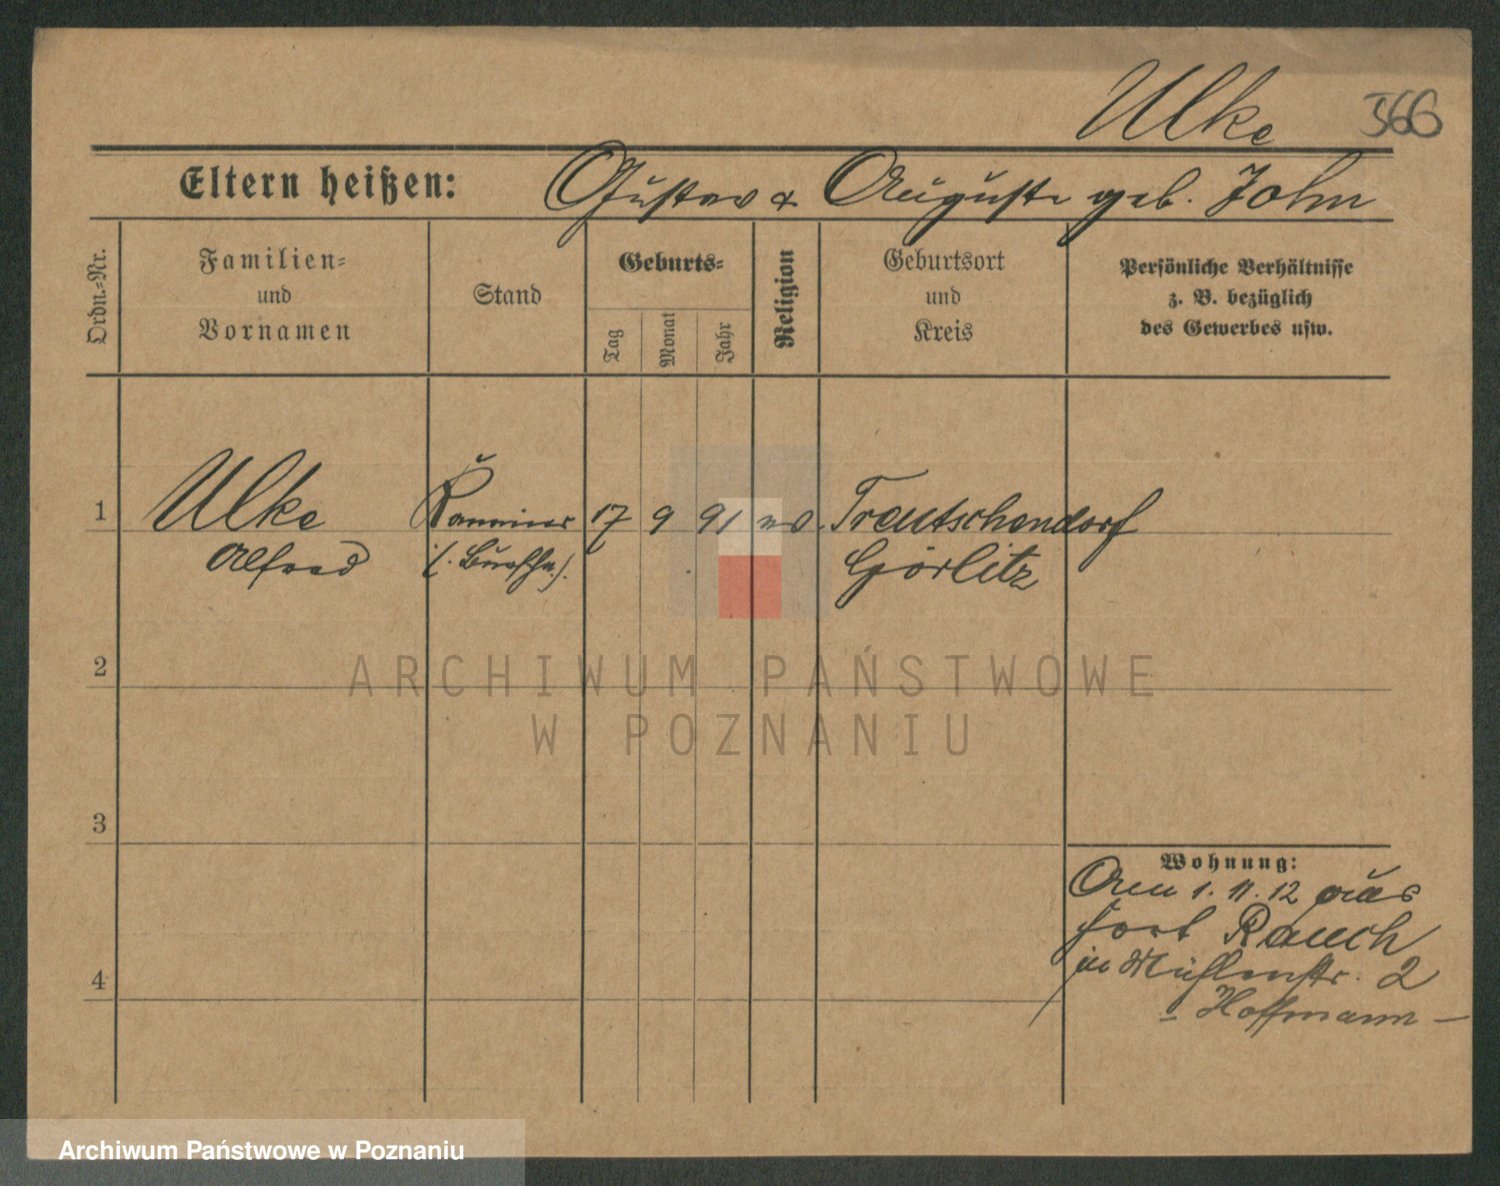 Ulke 366
Eltern heißen: Gustav & Auguste geb. John
Ordn.-Nr.
Familien-
und
Vornamen
Stand
Geburts-
Tag
Monat
Jahr
Religion
Geburtsort
und
Kreis
Persönliche Verhältnisse
z. B. bezüglich
des Gewerbes usw.
1 Ulke 17 9 91 ev. Trautschendorf
Alfred Görlitz
2
3
4
Wohnung:
Am 1. 11. 12 aus
Fort Rauch
in Mühlenstr. 2
- Hoffmann -
ARCHIWUM PAŃSTWOWE
W POZNANIU
Archiwum Państwowe w Poznaniu